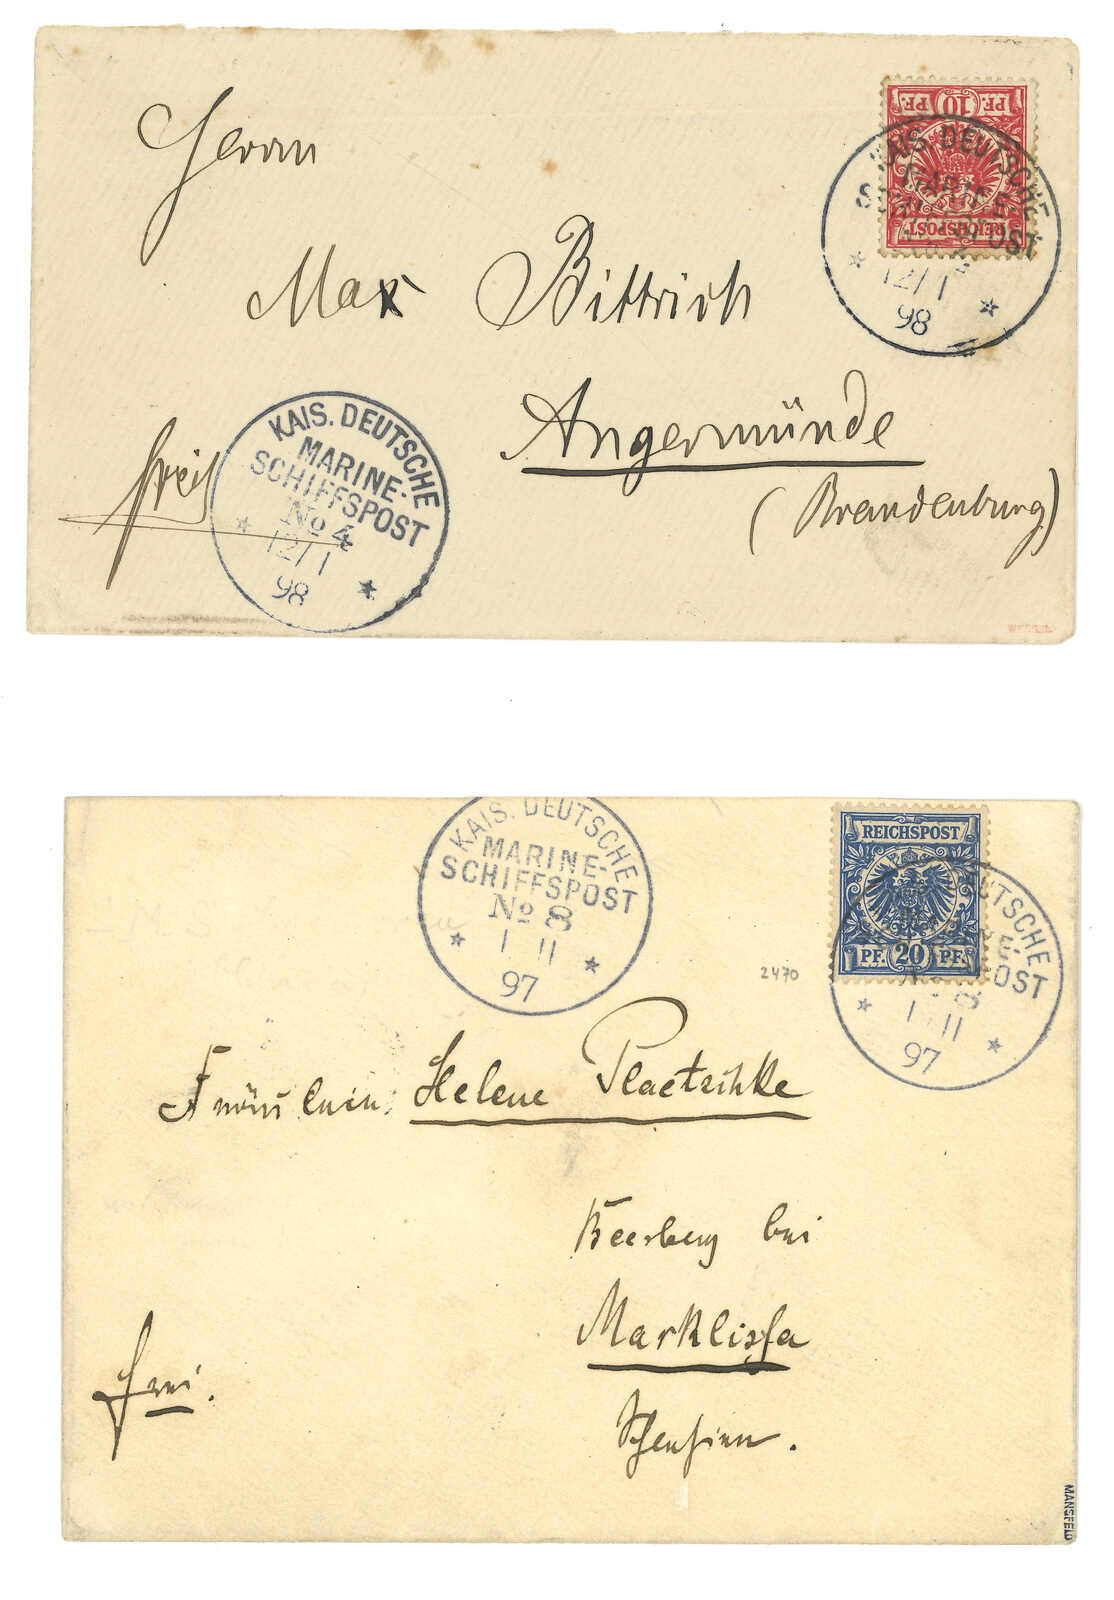 Herrn
Max Bittrich
Angermünde
(Brandenburg)
frei
PF. 10 PF.
REICHSPOST
KAIS. DEUTSCHE
MARINE-
SCHIFFSPOST
12/1
98
KAIS. DEUTSCHE
MARINE-
SCHIFFSPOST
No 4
12/1
98
KAIS. DEUTSCHE
MARINE-
SCHIFFSPOST
No 8
1 11
97
REICHSPOST
PF. 20 PF.
DEUTSCHE
NE-
POST
8
1 11
97
2470
Fräulein Helene Plaetschke
Beerberg bei
Marklissa
frei.
MANSFELD